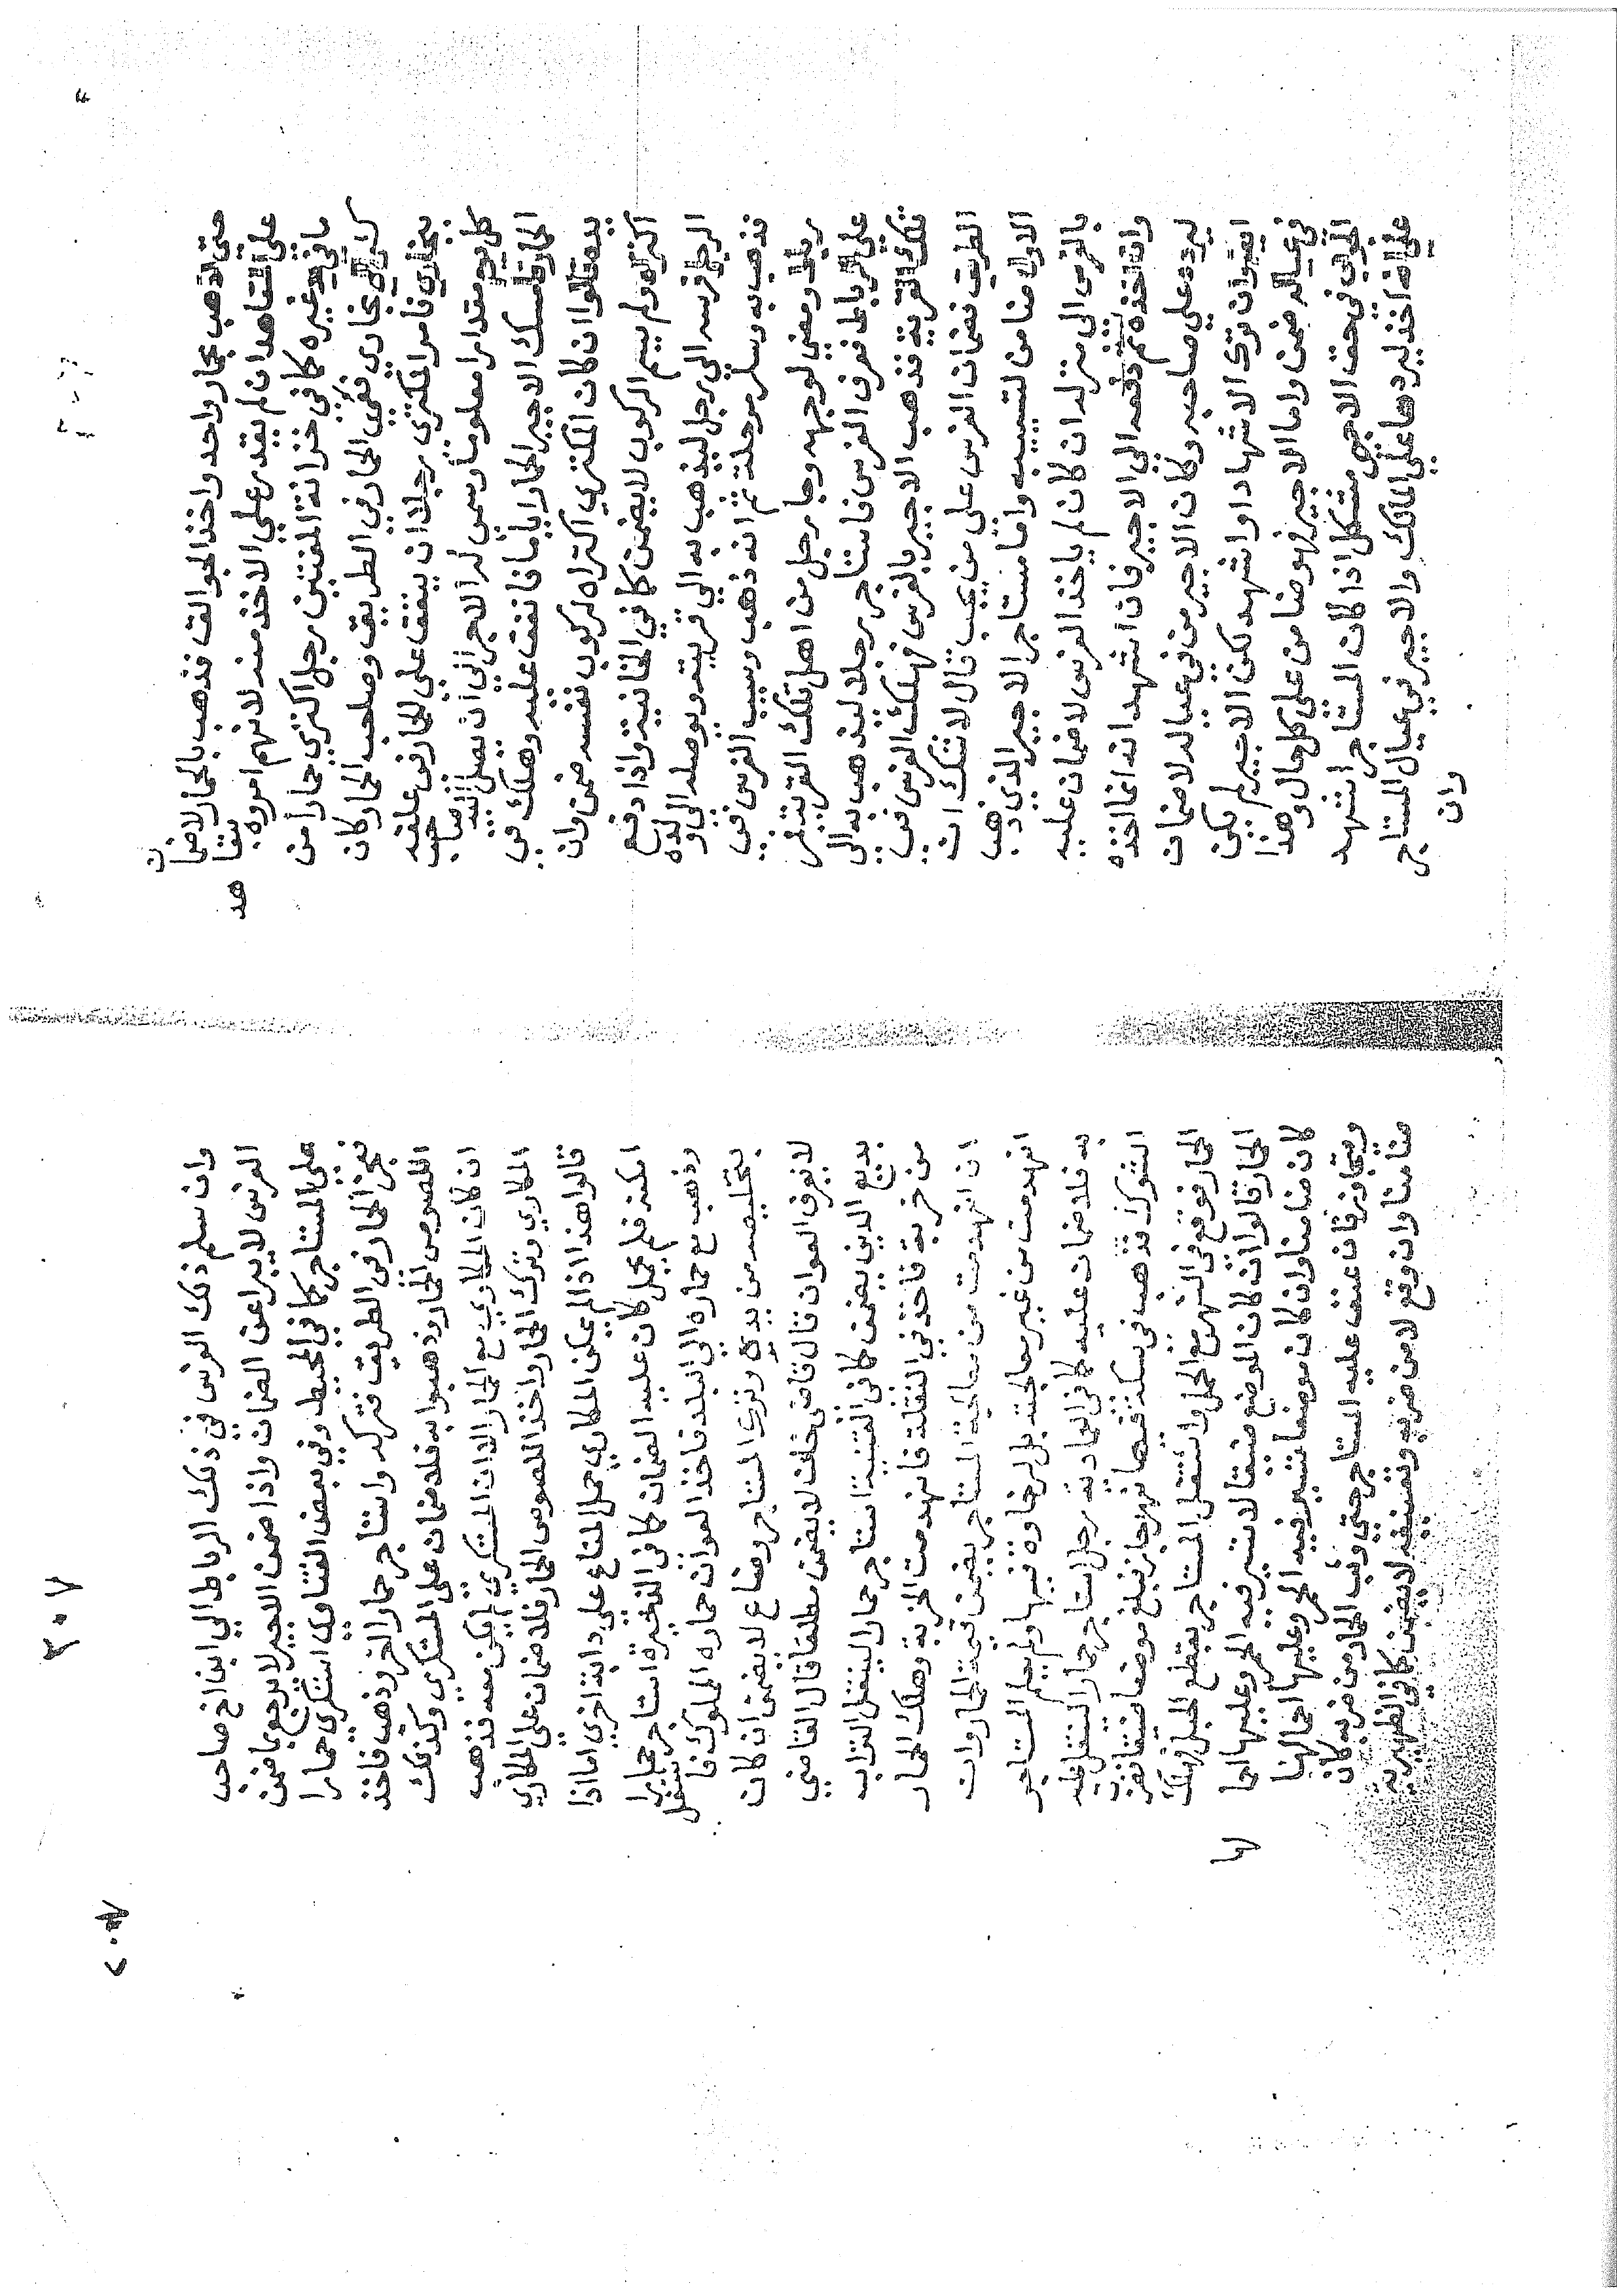 متى اذهب بحمار واحد واخذ الجوالق فذهب بالحمار لاضمان
على الشاهد ان لم يقدر على الاخذ منه لانهم امروه
غيره كما في خزانة المفتين رجل اكترى حمارا من
الى بخارى فعيي الحمار في الطريق وصاحب الحمار كان
ببخارى فامر المكتري رجلا ان ينفق على الحمار في علفه
كل يوم مقدارا معلوما وسمى له الاجر الى ان يصل اليه صاحب
الحمار فامسك الاجير الحمار اياما فانفق عليه وهلك في
يده قالوا ان كان المكتري اكتراه لركوب نفسه ضمن وان
اكتراه ولم يسم الركوب لا يضمن كما في الخانية واذا دفع
الرجل فرسه الى رجل ليذهب به الى قريته ويوصله الى ولده
فذهب به وسار مرحلة ثم انه ذهب وسيب الفرس في
رباط ومضى لوجهه وجا رجل من اهل تلك القرية فمر
على الرباط فعرف الفرس فاستاجر رجلا ليذهب به الى
تلك القرية فذهب الاجير بالفرس فهلك الفرس في
الطريق فضمان الفرس على من يجب قال لا شك ان
الاول ضامن لتسييبه واما مستاجر الاجير الذي ذهب
بالفرس الى منزله ان كان لم ياخذ الفرس لا ضمان عليه
وان اخذه ثم دفعه الى الاجير فان اشهد انه انما اخذه
ليرده على صاحبه وكان الاجير من في عياله لا ضمان
ايضا وان ترك الاشهاد او اشهد لكن الاجير لم يكن
في عياله ضمن واما الاجير فهو ضامن على كل حال وهذا
الجواب في حق الاجير مشكل اذا كان المستاجر اشهد
على انه اخذ ليردها على المالك والاجير في عيال المستاجر
وان
٢٠٧
وان سلم ذلك الفرس في ذلك الرباط الى ابن اخ صاحب
الفرس لا يبرا عن الضمان واذا ضمن الاجير لا يرجع بما ضمن
على المستاجر كما في المحيط وفي بعض الفتاوى استكرى حمارا
فعجز الحمار في الطريق فتركه واستاجر حمارا اخر وذهب فاخذ
اللصوص الحمار وذهبوا به فلا ضمان على المستكري وكذلك
ان كان المكاري مع الحمار الا ان المستكري لم يكن معه فذهب
المكاري وترك الحمار واخذ اللصوص الحمار فلا ضمان على المكاري
قالوا هذا اذا لم يمكن المكاري حمل المتاع على دابة اخرى اما اذا
امكنه فلم يحمل كان عليه الضمان كما في الذخيرة استاجر حمارا
وذهب مع حماره الى البلد فاخذ العوان حماره المملوك فاشتغل
بتخليصه من يده وترك المستاجر وضاع لا يضمن ان كان
لا يعرف العوان قال قاضي خان لا يضمن مطلقا قال القاضي
بديع الدين يضمن كما في القنية استاجر حمارا لينقل التراب
من خربة فاخذ في النقلة فانهدمت الخربة وهلك الحمار
ان انهدمت من معالجة المستاجر يضمن قيمة الحمار وان
انهدمت من غير معالجته بل لرخاوة فيها ولم يعلم المستاجر
به فلا ضمان عليه كما في العمادية رجل استاجر حمارا لينقل عليه
الشوك فذهب في سكة فيها نهر جار فبلغ موضعا ضيقا فضرب
الحمار فوقع في النهر مع الحمل واشتغل المستاجر بقطع الحبل فهلك
الحمار قالوا ان كان الموضع ضيقا لا تسير فيه الحمر وعليها احمالها
كان ضامنا وان كان موضعا تسير فيه الحمر وعليها احمالها
ويتجاوز فان عنف عليه المستاجر حتى وثب الحمار من ضربه كان
ضامنا وان وقع لا من ضربه وتعنيفه لا يضمن كما في الظهيرية
٢٠٧